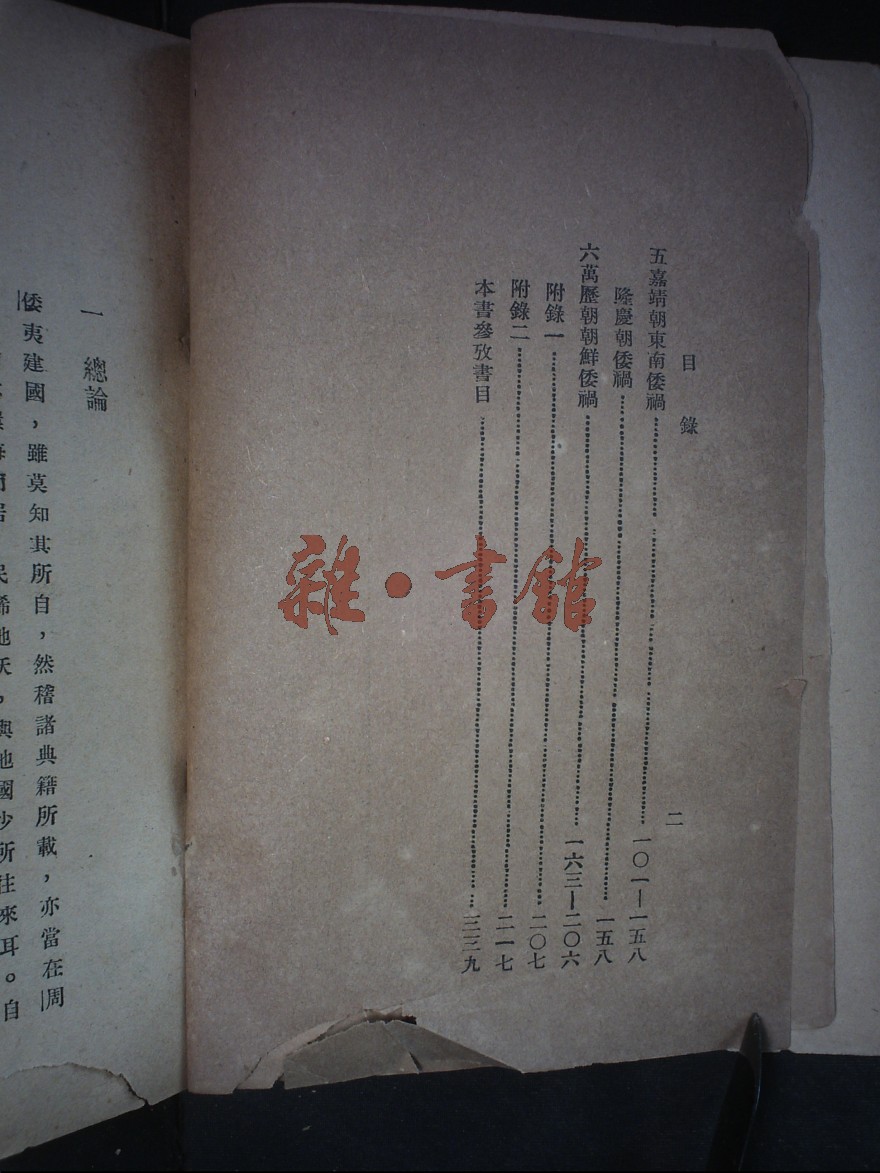 目錄
二
五嘉靖朝東南倭禍……一〇一—一五八
隆慶朝倭禍……一五八
六萬歷朝朝鮮倭禍……一六三—二〇六
附錄一……二〇七
附錄二……二一七
本書參攷書目……
雜·書館
一 總論
倭夷建國，雖莫知其所自，然稽諸典籍所載，亦當在周
民稀地沃，與他國少所往來耳。自